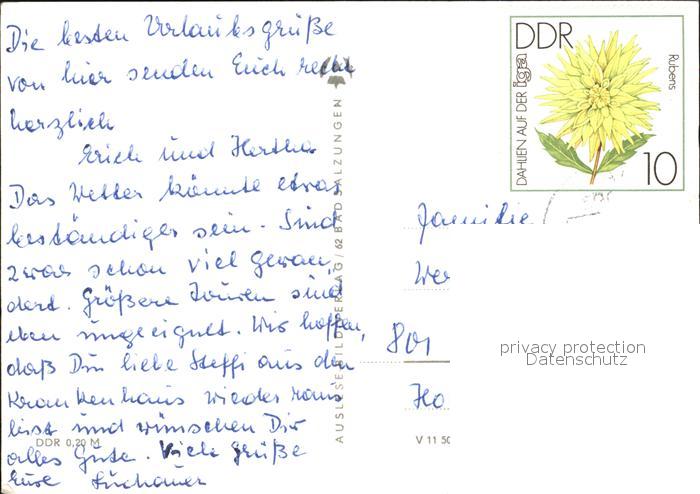 Die besten Urlaubsgrüße
von hier senden Euch recht
herzlich
Erich und Hertha
Das Wetter könnte etwas
beständiger sein. Sind
zwar schon viel gewan-
dert. Größere Touren sind
eben ungeeignet. Wir hoffen,
daß Du liebe Steffi aus dem
Krankenhaus wieder raus
bist und wünschen Dir
alles Gute. Viele Grüße
Eure
DDR 0,20 M
AUSLESE-BILD-VERLAG / 62 BAD SALZUNGEN
V 11 50
DDR
DAHLIEN AUF DER iga
Rubens
10
Familie
Wer
801
Ho
privacy protection
Datenschutz